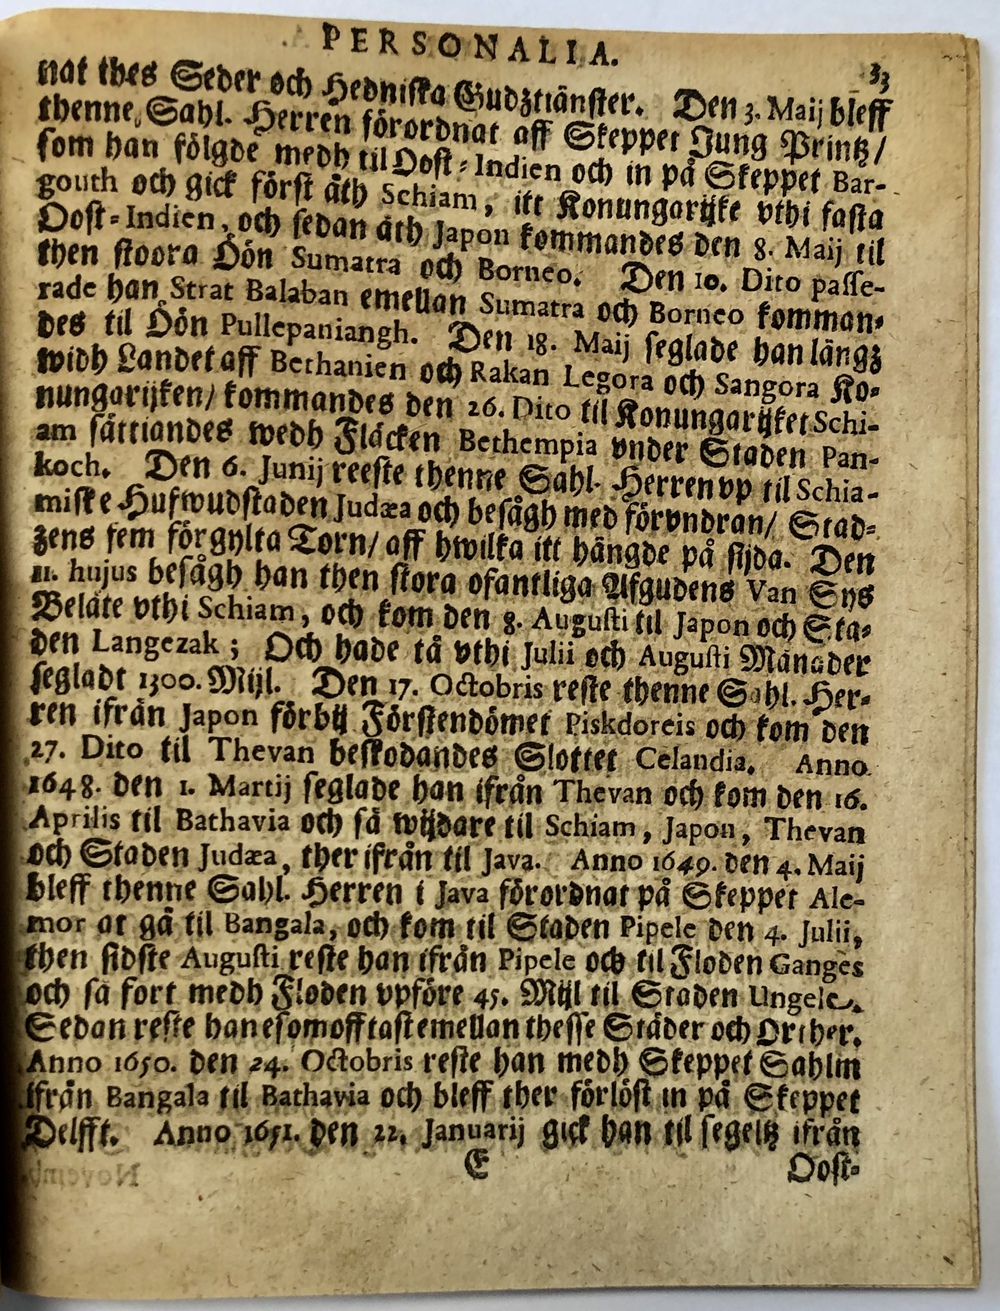 PERSONALIA.
33
nat thes Seder och Hedniska Gudztiänster. Den 3. Maij bleff
thenne Sahl. Herren förordnat aff Skeppet Jung Printz/
som han fölgde medh til Oost-Indien och in på Skeppet Bar-
gouth och gick först åth Schiam, itt Konungarijke vthi fasta
Oost-Indien, och sedan åth Japon kommandes den 8. Maij til
then stoora Öön Sumatra och Borneo. Den 10. Dito passe-
rade han Strat Balaban emellan Sumatra och Borneo komman-
des til Öön Pullepaniangh. Den 18. Maij seglade han längz
widh Landet aff Bethanien och Rakan Legora och Sangora Ko-
nungarijken/ kommandes den 26. Dito til Konungarijket Schi-
am sättiandes wedh Fläcken Bethempia vnder Staden Pan-
koch. Den 6. Junij reeste thenne Sahl. Herren vp til Schia-
miske Hufwudstaden Judæa och besågh med förvndran/ Stad-
zens fem förgylta Torn/ aff hwilka itt hängde på sijda. Den
11. hujus besågh han then stora ofantliga Afgudens Van Sys
Beläte vthi Schiam, och kom den 8. Augusti til Japon och Sta-
den Langezak; Och hade tå vthi Julii och Augusti Månader
segladt 1300. Mijl. Den 17. Octobris reste thenne Sahl. Her-
ren ifrån Japon förbij Förstendömet Piskdoreis och kom den
27. Dito til Thevan beskodandes Slottet Celandia. Anno
1648. den 1. Martij seglade han ifrån Thevan och kom den 16.
Aprilis til Bathavia och så wijdare til Schiam, Japon, Thevan
och Staden Judæa, ther ifrån til Java. Anno 1649. den 4. Maij
bleff thenne Sahl. Herren i Java förordnat på Skeppet Ale-
mor at gå til Bangala, och kom til Staden Pipele den 4. Julii,
then sidste Augusti reste han ifrån Pipele och til Floden Ganges
och så fort medh Floden vpföre 45. Mijl til Staden Ungele.
Sedan reste han esomofftast emellan thesse Städer och Orther.
Anno 1650. den 24. Octobris reste han medh Skeppet Sahlm
ifrån Bangala til Bathavia och bleff ther förlöst in på Skeppet
Delfft. Anno 1651. den 22. Januarij gick han til segelß ifrån
E
Oost-